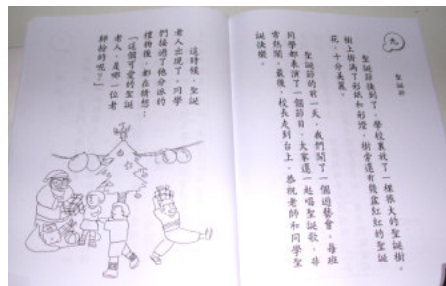 九
聖誕節
聖誕節快到了,學校裏放了一棵很大的聖誕樹。
樹上掛滿了彩紙和彩燈,樹旁還有幾盆紅紅的聖誕
花,十分美麗。
聖誕節的前一天,我們開了一個遊藝會,每班
同學都表演了一個節目,大家還一起唱聖誕歌,非
常熱鬧。最後,校長走到台上,恭祝老師和同學聖
誕快樂。
這時候,聖誕
老人出現了。同學
們接過了他分派的
禮物後,都在猜想:
「這個可愛的聖誕
老人,是哪一位老
師扮的呢?」